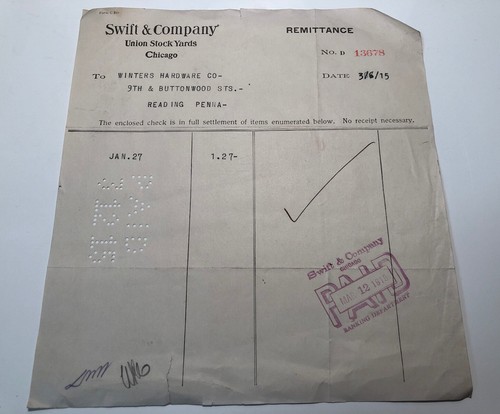 Swift & Company
Union Stock Yards
Chicago
REMITTANCE
No. D 13678
To WINTERS HARDWARE CO-
DATE 3/6/15
9TH & BUTTONWOOD STS.-
READING PENNA-
The enclosed check is in full settlement of items enumerated below. No receipt necessary.
JAN.27 1.27-
Swift & Company
CHICAGO
PAID
MAR 12 1915
BANKING DEPARTMENT